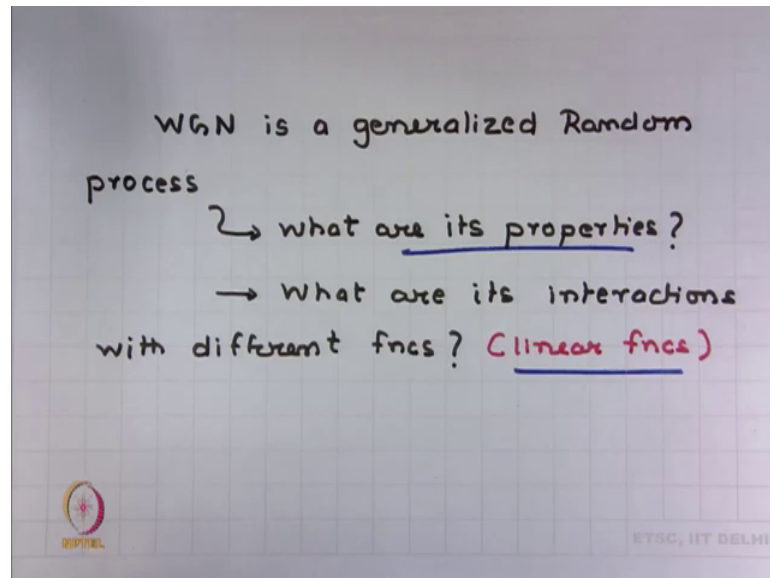 WGN is a generalized Random
process
↳ what are its properties?
→ What are its interactions
with different fncs? (linear fncs)
NPTEL
ETSC, IIT DELHI